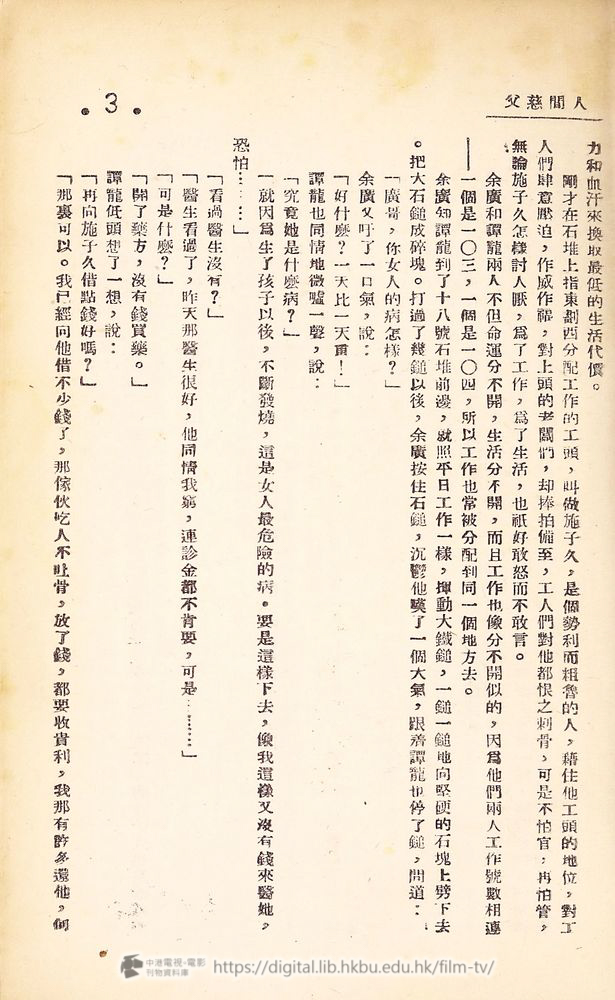 人間慈父
• 3 •
力和血汗來換取最低的生活代價。
剛才在石堆上指東劃西分配工作的工頭，叫做施子久，是個勢利而粗魯的人，藉住他工頭的地位，對工
人們肆意壓迫，作威作福，對上頭的老闆們，却捧拍備至，工人們對他都恨之刺骨，可是不怕官，再怕管，
無論施子久怎樣討人厭，爲了工作，爲了生活，也祇好敢怒而不敢言。
余廣和譚龍兩人不但命運分不開，生活分不開，而且工作也像分不開似的，因爲他們兩人工作號數相連
——一個是一〇三，一個是一〇四，所以工作也常被分配到同一個地方去。
余廣知譚龍到了十八號石堆前邊，就照平日工作一樣，揮動大鐵鎚，一鎚一鎚地向堅硬的石塊上劈下去
。把大石鎚成碎塊。打過了幾鎚以後，余廣按住石鎚，沉鬱地嘆了一個大氣，跟着譚龍也停了鎚，問道：
「廣哥，你女人的病怎樣？」
余廣又吁了一口氣，說：
「好什麼？一天比一天重！」
譚龍也同情地微噓一聲，說：
「究竟她是什麼病？」
「就因爲生了孩子以後，不斷發燒，這是女人最危險的病。要是這樣下去，像我這樣又沒有錢來醫她，
恐怕………」
「看過醫生沒有？」
「醫生看過了，昨天那醫生很好，他同情我窮，連診金都不肯要，可是………」
「可是什麼？」
「開了藥方，沒有錢買藥。」
譚龍低頭想了一想，說：
「再向施子久借點錢好嗎？」
「那裏可以。我已經向他借不少錢了，那傢伙吃人不吐骨，放了錢，都要收貴利，我那有許多還他，何
中港電視·電影
刊物資料庫
https://digital.lib.hkbu.edu.hk/film-tv/